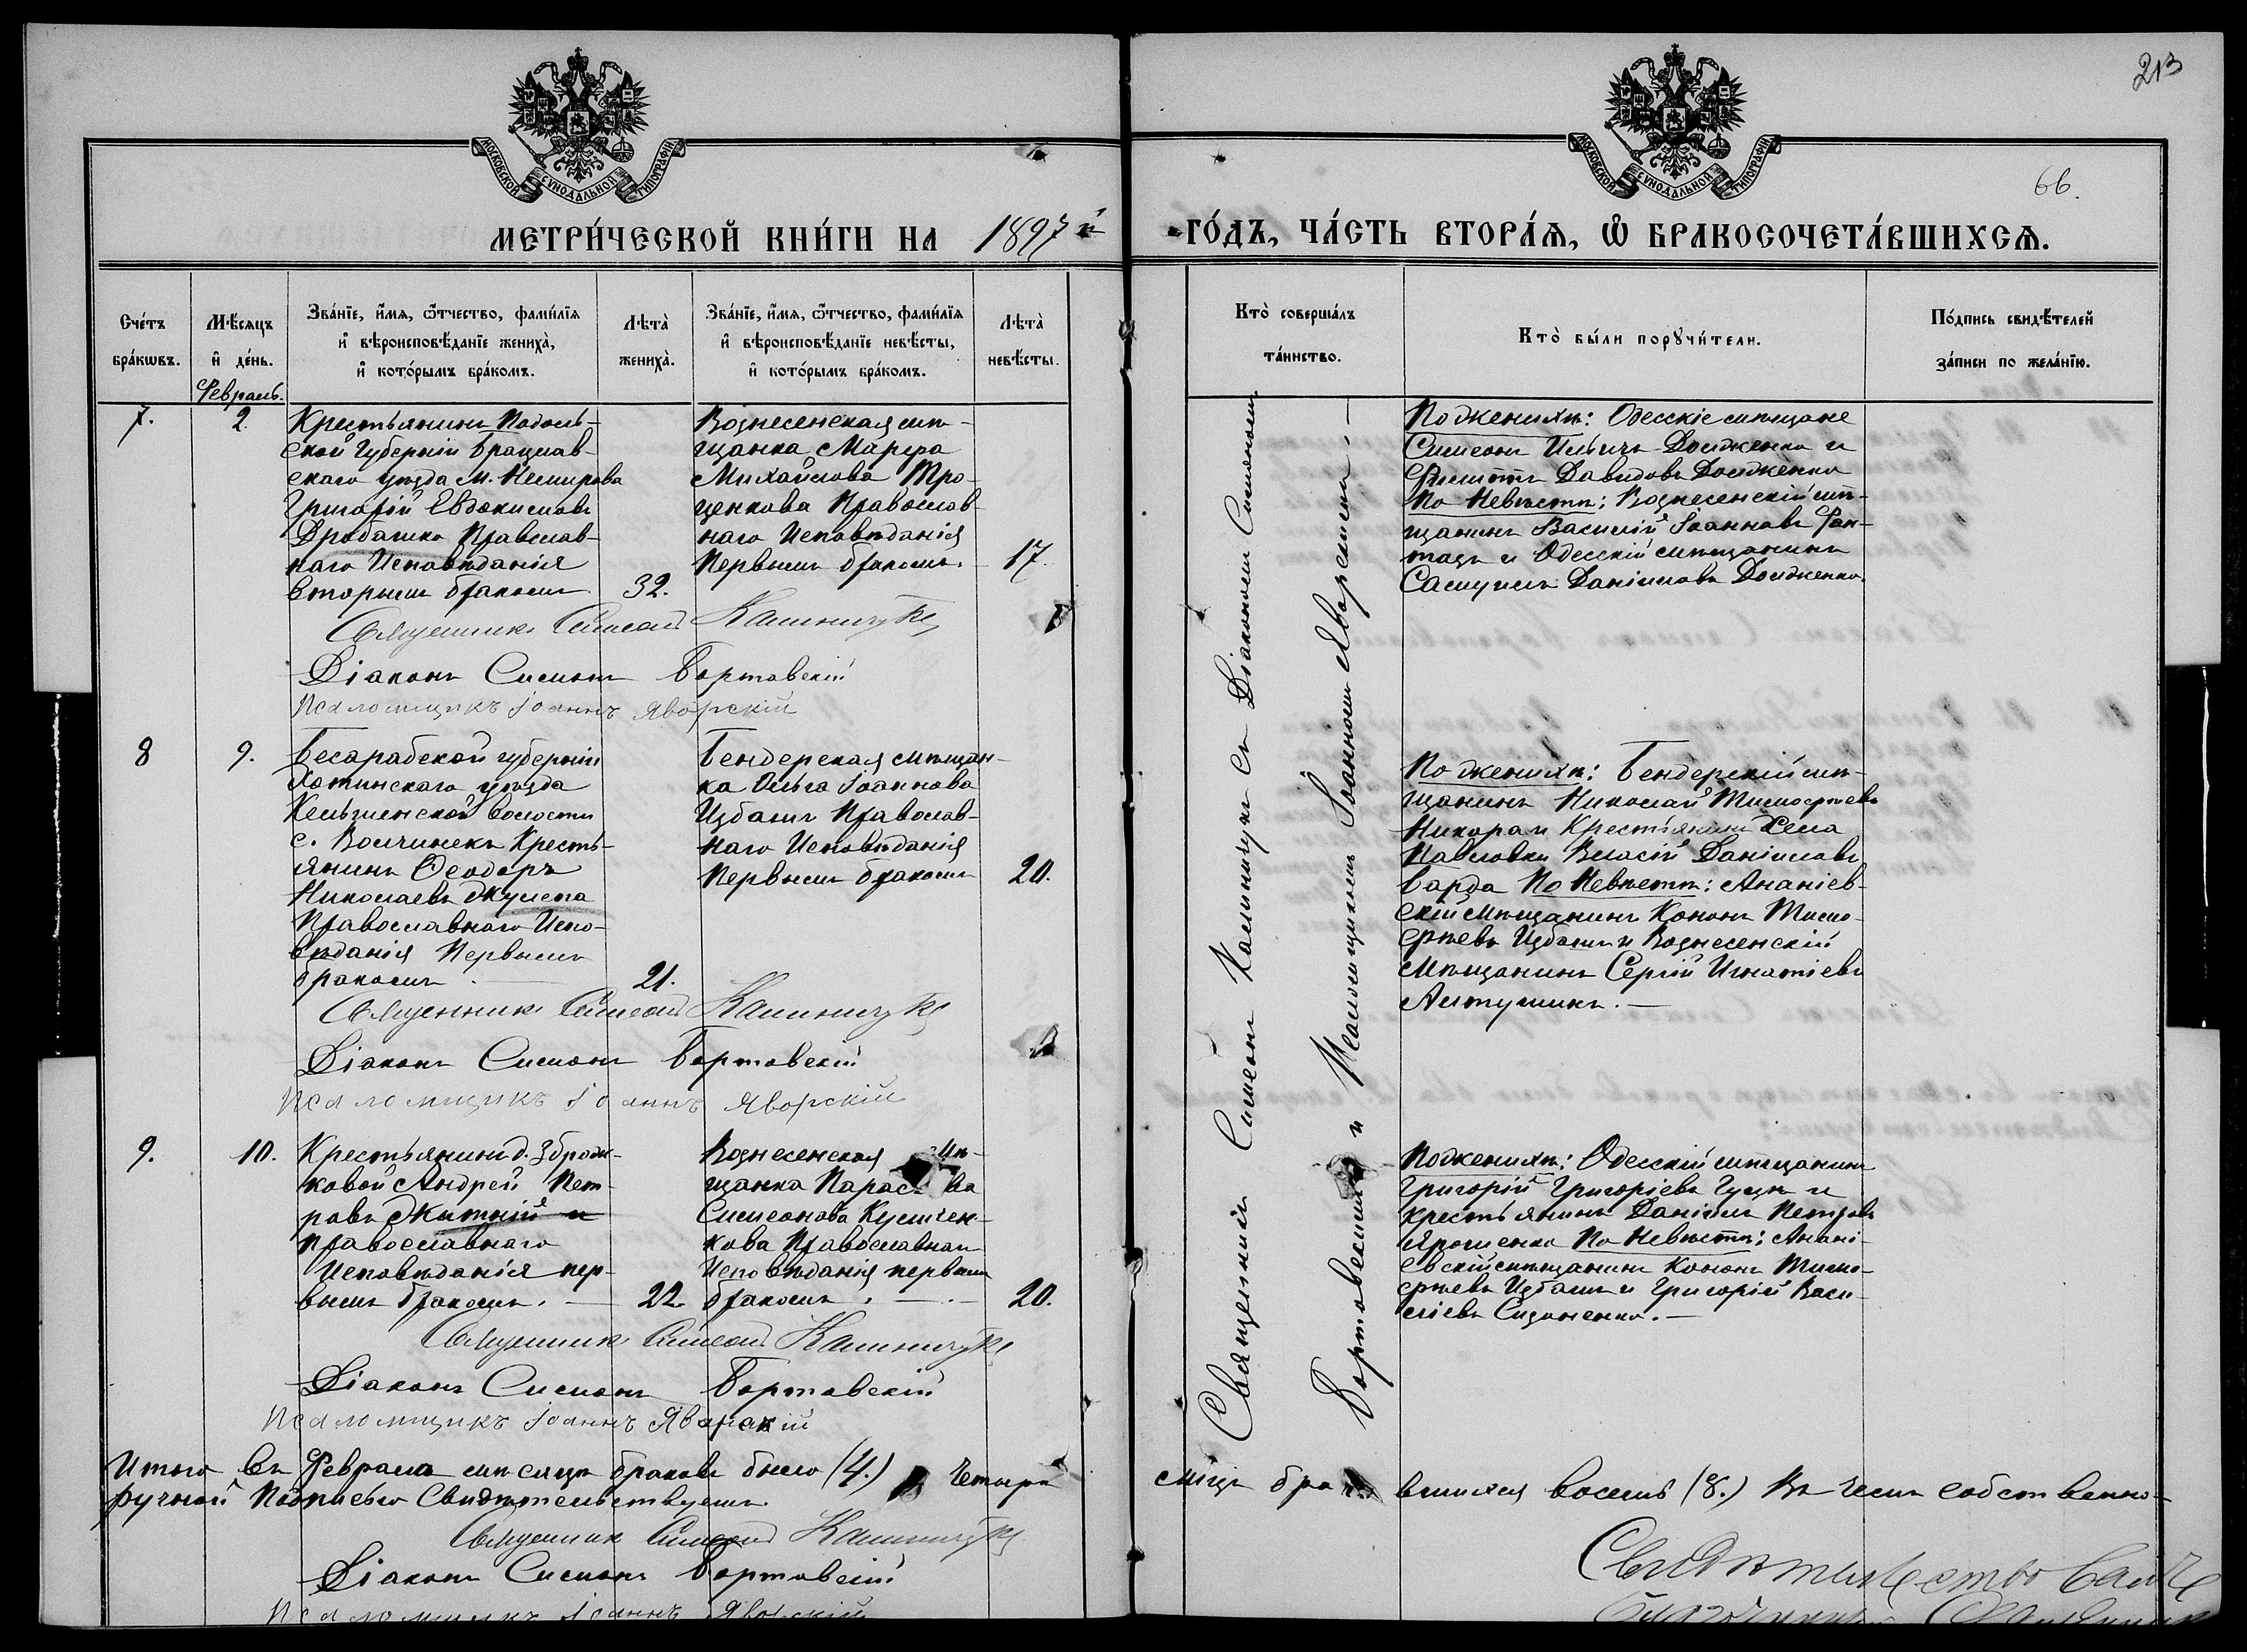 213
66.
МОСКОВСКОЙ СѴНОДАЛЬНОЙ ТИПОГРАФІИ
МОСКОВСКОЙ СѴНОДАЛЬНОЙ ТИПОГРАФІИ
МЕТРИ́ЧЕСКОЙ КНИ́ГИ НА 1897й
ГО́ДЪ, ЧА́СТЬ ВТОРА́Я, Ѡ БРАКОСОЧЕТА́ВШИХСЯ.
Сче́тъ бра́кѡвъ.
Мѣ́сяцъ и҆ де́нь.
Зва́нїе, и҆́мя, ѻ҆́тчество, фами́лїя
и҆ вѣроисповѣ́данїе жениха̀,
и҆ кото́рымъ бра́комъ.
Лѣта̀ жениха̀.
Зва́нїе, и҆́мя, ѻ҆́тчество, фами́лїя
и҆ вѣроисповѣ́данїе невѣ́сты,
и҆ кото́рымъ бра́комъ.
Лѣта̀ невѣ́сты.
Кто̀ соверша́лъ та́инство.
Кто̀ бы́ли порꙋчи́тели.
По́дпись свидѣ́телей за́писи по жела́нїю.
Февраль.
7.
2.
Крестьянинъ Подоль-
ской Губерніи Брацлав-
скаго уѣзда м. Немирова
Григорій Евдокимовъ
Дробашко Православ-
наго Исповѣданія
вторымъ бракомъ
32.
Вознесенская мѣ-
щанка Марфа
Михайлова Тро-
ценкова Православ-
наго Исповѣданія
Первымъ бракомъ.
17.
По женихѣ: Одесскіе мѣщане
Симеонъ Ильичъ Долженко и
Филиппъ Давидовъ Долженко
По Невѣстѣ: Вознесенскій мѣ-
щанинъ Василій Іоанновъ Фан-
тазъ и Одесскій мѣщанинъ
Самуилъ Даніиловъ Долженко.
Священникъ Симеонъ Калиничукъ
Діаконъ Симеонъ Бортовскій
Псаломщикъ Іоаннъ Яворскій
8
9.
Бесарабской губерніи
Хотинскаго уѣзда
Кельменской волости
с. Волчинекъ Кресть-
янинъ Ѳеодоръ
Николаевъ Жулепа
Православнаго Испо-
вѣданія Первымъ
бракомъ.
21.
Бендерская мѣщан-
ка Ольга Іоаннова
Избашъ Православ-
наго Исповѣданія
Первымъ бракомъ
20.
По женихѣ: Бендерскій мѣ-
щанинъ Николай Тимофеевъ
Никора и Крестьянинъ Села
Павловки Власій Даніиловъ
Барда По Невѣстѣ: Ананіев-
скій мѣщанинъ Кононъ Тимо-
феевъ Избашъ и Вознесенскій
Мѣщанинъ Сергій Игнатіевъ
Алтушинъ.
Священникъ Симеонъ Калиничукъ
Діаконъ Симеонъ Бортовскій
Псаломщикъ Іоаннъ Яворскій
9.
10.
Крестьянинъ д. Зброж-
ковой Андрей Пет-
ровъ Житній
Православнаго
Исповѣданія пер-
вымъ бракомъ.
22.
Вознесенская мѣ-
щанка Параскева
Симеонова Кузмен-
кова Православнаго
Исповѣданія первымъ
бракомъ.
20.
По женихѣ: Одесскій мѣщанинъ
Григорій Григоріевъ Гуцъ и
крестьянинъ Даніилъ Петровъ
Ярошенко По Невѣстѣ: Анані-
евскій мѣщанинъ Кононъ Тимо-
феевъ Избашъ и Григорій Васи-
ліевъ Сидоненко.
Священникъ Симеонъ Калиничукъ
Діаконъ Симеонъ Бортовскій
Псаломщикъ Іоаннъ Яворскій
Священникъ Симеонъ Калиничукъ съ Діакономъ Симеономъ
Бортовскимъ и Псаломщикомъ Іоанномъ Яворскимъ.
Итого въ Февралѣ мѣсяцѣ браковъ было (4.) Четыре
вшихся восемь (8.) Въ чемъ собственно-
ручной Подписью Свидѣтельствуемъ.
Священникъ Симеонъ Калиничукъ
Діаконъ Симеонъ Бортовскій
Псаломщикъ Іоаннъ Яворскій
Свидѣтельствовалъ
Благочинный Священникъ